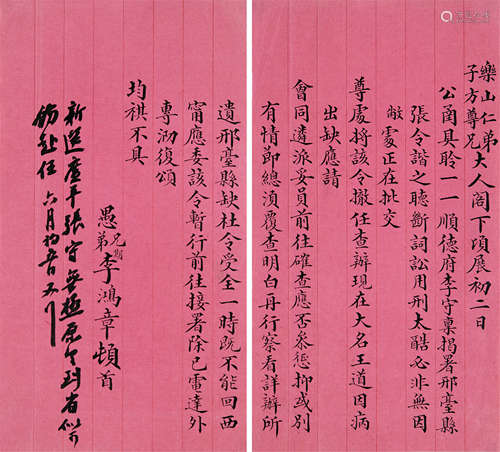 樂山仁弟
子方尊兄大人閣下頃展初二日
公函具聆一一順德府李守稟揭署邢臺縣
張令諧之聽斷詞訟用刑太酷必非無因
敝處正在批交
尊處將該令撤任查辦現在大名王道因病
出缺應請
會同遴派妥員前往確查應否參懲抑或別
有情節總須覆查明白再行察看詳辦所
遺邢臺縣缺杜令受全一時既不能回西
甯應委該令暫行前往接署除已電達外
專泐復頌
均祺不具
愚兄弟李鴻章頓首
新選廣平張守
飭赴任 六月初